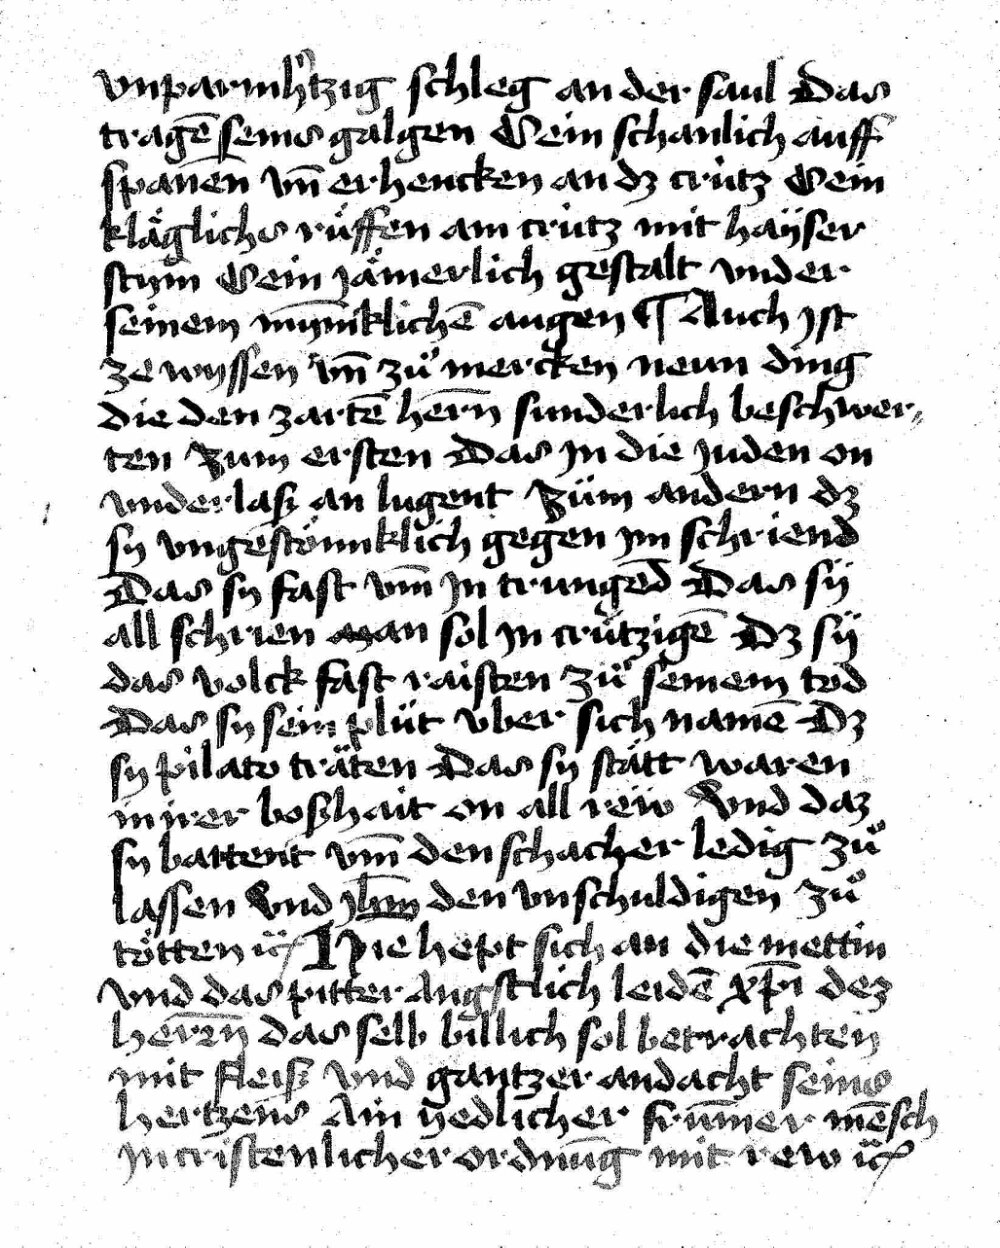 vnparmhͤtzig schleg an der saul Das
tragē seins galgen Sein schanlich auff
spanēn vn̄ erhencken an dz crütz Sein
kläglichs rüffen am crütz mit haÿser
stym Sein jämerlich gestalt vnder
seinem mynniklichē augen ¶ Auch jst
ze wyssen vn̄ zuͦ mercken neun ding
die den zartē hern̄ sunderlich beschwer„
ten Zum ersten Das jn die juden on
vnderlasz an lugent Züm andern dz
sy vngestömiklich gegen jm schriend
Das sy fast vm̄ jn trungēd Das sÿ
all schrien man sol jn crützigē Dz sÿ
das volck fast raisten zuͦ seinem tod
Das sy sein plüt vber sich namē Dz
sy pilato träten Das sy stätt waren
in irer boszhait on all reẅ Vnd daz
sy battent vm̄ den schacher ledig zuͦ
lassen Vnd jhm̄ den vnschuldigen zuͦ
tötten ⁊c̈ Hie hept sich an die mettin
vnd das pitter Angstlich leidē xp̄i dez
herrn̄ das selb billich sol betrachten
mit fleisz vnd gantzer andacht seins
hertzens Ain yedlicher frum̄er mēsch
jn cristenlicher ordnūg mit rew ⁊c̈